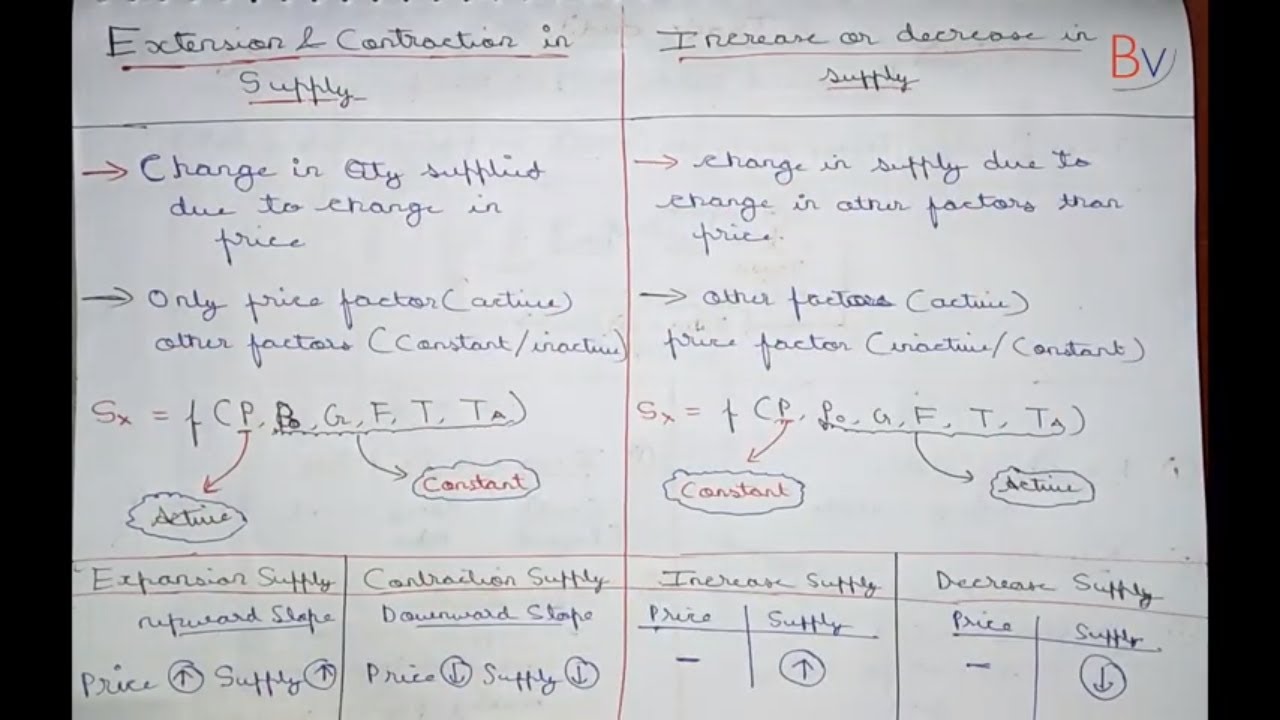 Extension & Contraction in
Supply
→ Change in Qty supplied
due to change in
price
→ Only price factor (active)
other factors (Constant/inactive)
Sx = f (P, Po, G, F, T, TA)
Active
Constant
Expansion Supply
upward Slope
Price ↑ Supply ↑
Contraction Supply
Downward Slope
Price ↓ Supply ↓
Increase or decrease in
supply
BV
→ change in supply due to
change in other factors than
price.
→ other factors (active)
price factor (inactive/Constant)
Sx = f (P, Po, G, F, T, TA)
Constant
Active
Increase Supply
Price Supply
– ↑
Decrease Supply
Price Supply
– ↓